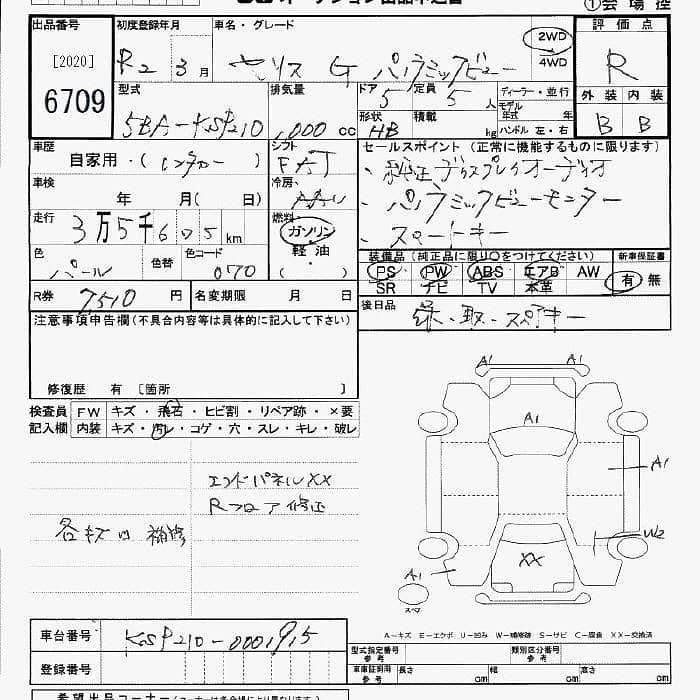 ①会場控
出品番号 初度登録年月 車名・グレード 評価点
[2020] R2 3月 ヤリス G パノラミックビュー 2WD 4WD R
6709
型式 排気量 ドア 定員 ディーラー・並行 外装 内装
5BA-KSP210 1000 cc 5 5人 モデル年式 年 B B
形状 HB 積載 kg ハンドル 左・右
車歴 シフト セールスポイント (正常に機能するものに限ります)
自家用・(レンタカー) FAT ・純正ディスプレイオーディオ
車検 冷房
年 月( 日) ・パノラミックビューモニター
走行 燃料
3万5千675km ガソリン ・スマートキー
軽油
色 色替 色コード 装備品(純正品に限り○をつけてください) 新車保証書
パール 070 ( ) PS PW ABS エアB AW 有・無
SR ナビ TV 本革
R券 7510円 名変期限 月 日 後日品 保・取・スペアキー
注意事項申告欄(不具合内容等は具体的に記入して下さい)
修復歴 有 [箇所 ]
検査員 FW キズ・飛石・ヒビ割・リペア跡・×要
記入欄 内装 キズ・汚レ・コゲ・穴・スレ・キレ・破レ
エンドパネルXX
Rフロア修正
各キズ凹補修
A1 A1
A1
A1
W2
XX
A1
A1
スペア
A-キズ E-エクボ U-凹み W-補修跡 S-サビ C-腐食 XX-交換済
車台番号 KSP210-0001915
型式指定番号 参考 類別区分番号 参考
登録番号 車車証利用 参考 長さ cm 幅 cm 高さ cm
希望出品コーナー